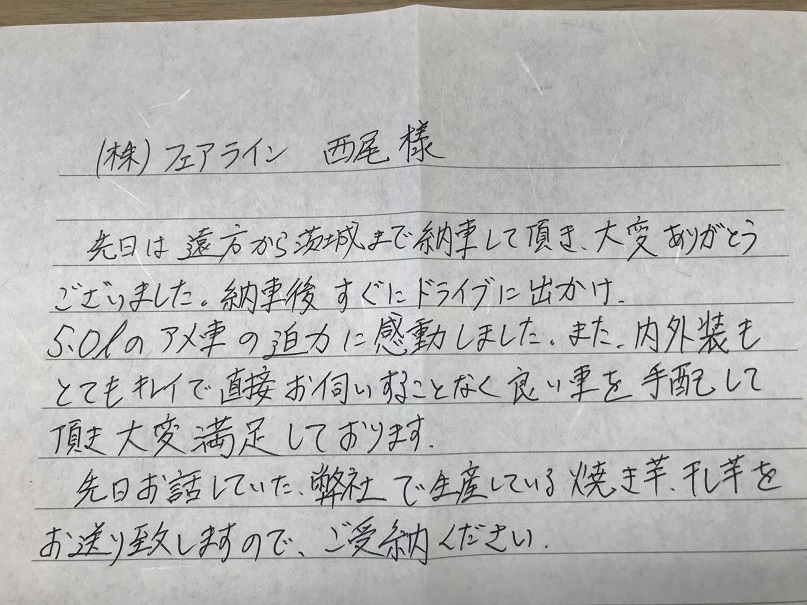 (株)フェアライン 西尾様
先日は遠方から茨城まで納車して頂き、大変ありがとう
ございました。納車後すぐにドライブに出かけ、
5.0lのアメ車の迫力に感動しました。また、内外装も
とてもキレイで直接お伺いすることなく良い車を手配して
頂き大変満足しております。
先日お話していた、弊社で生産している焼き芋、干し芋を
お送り致しますので、ご受納ください。